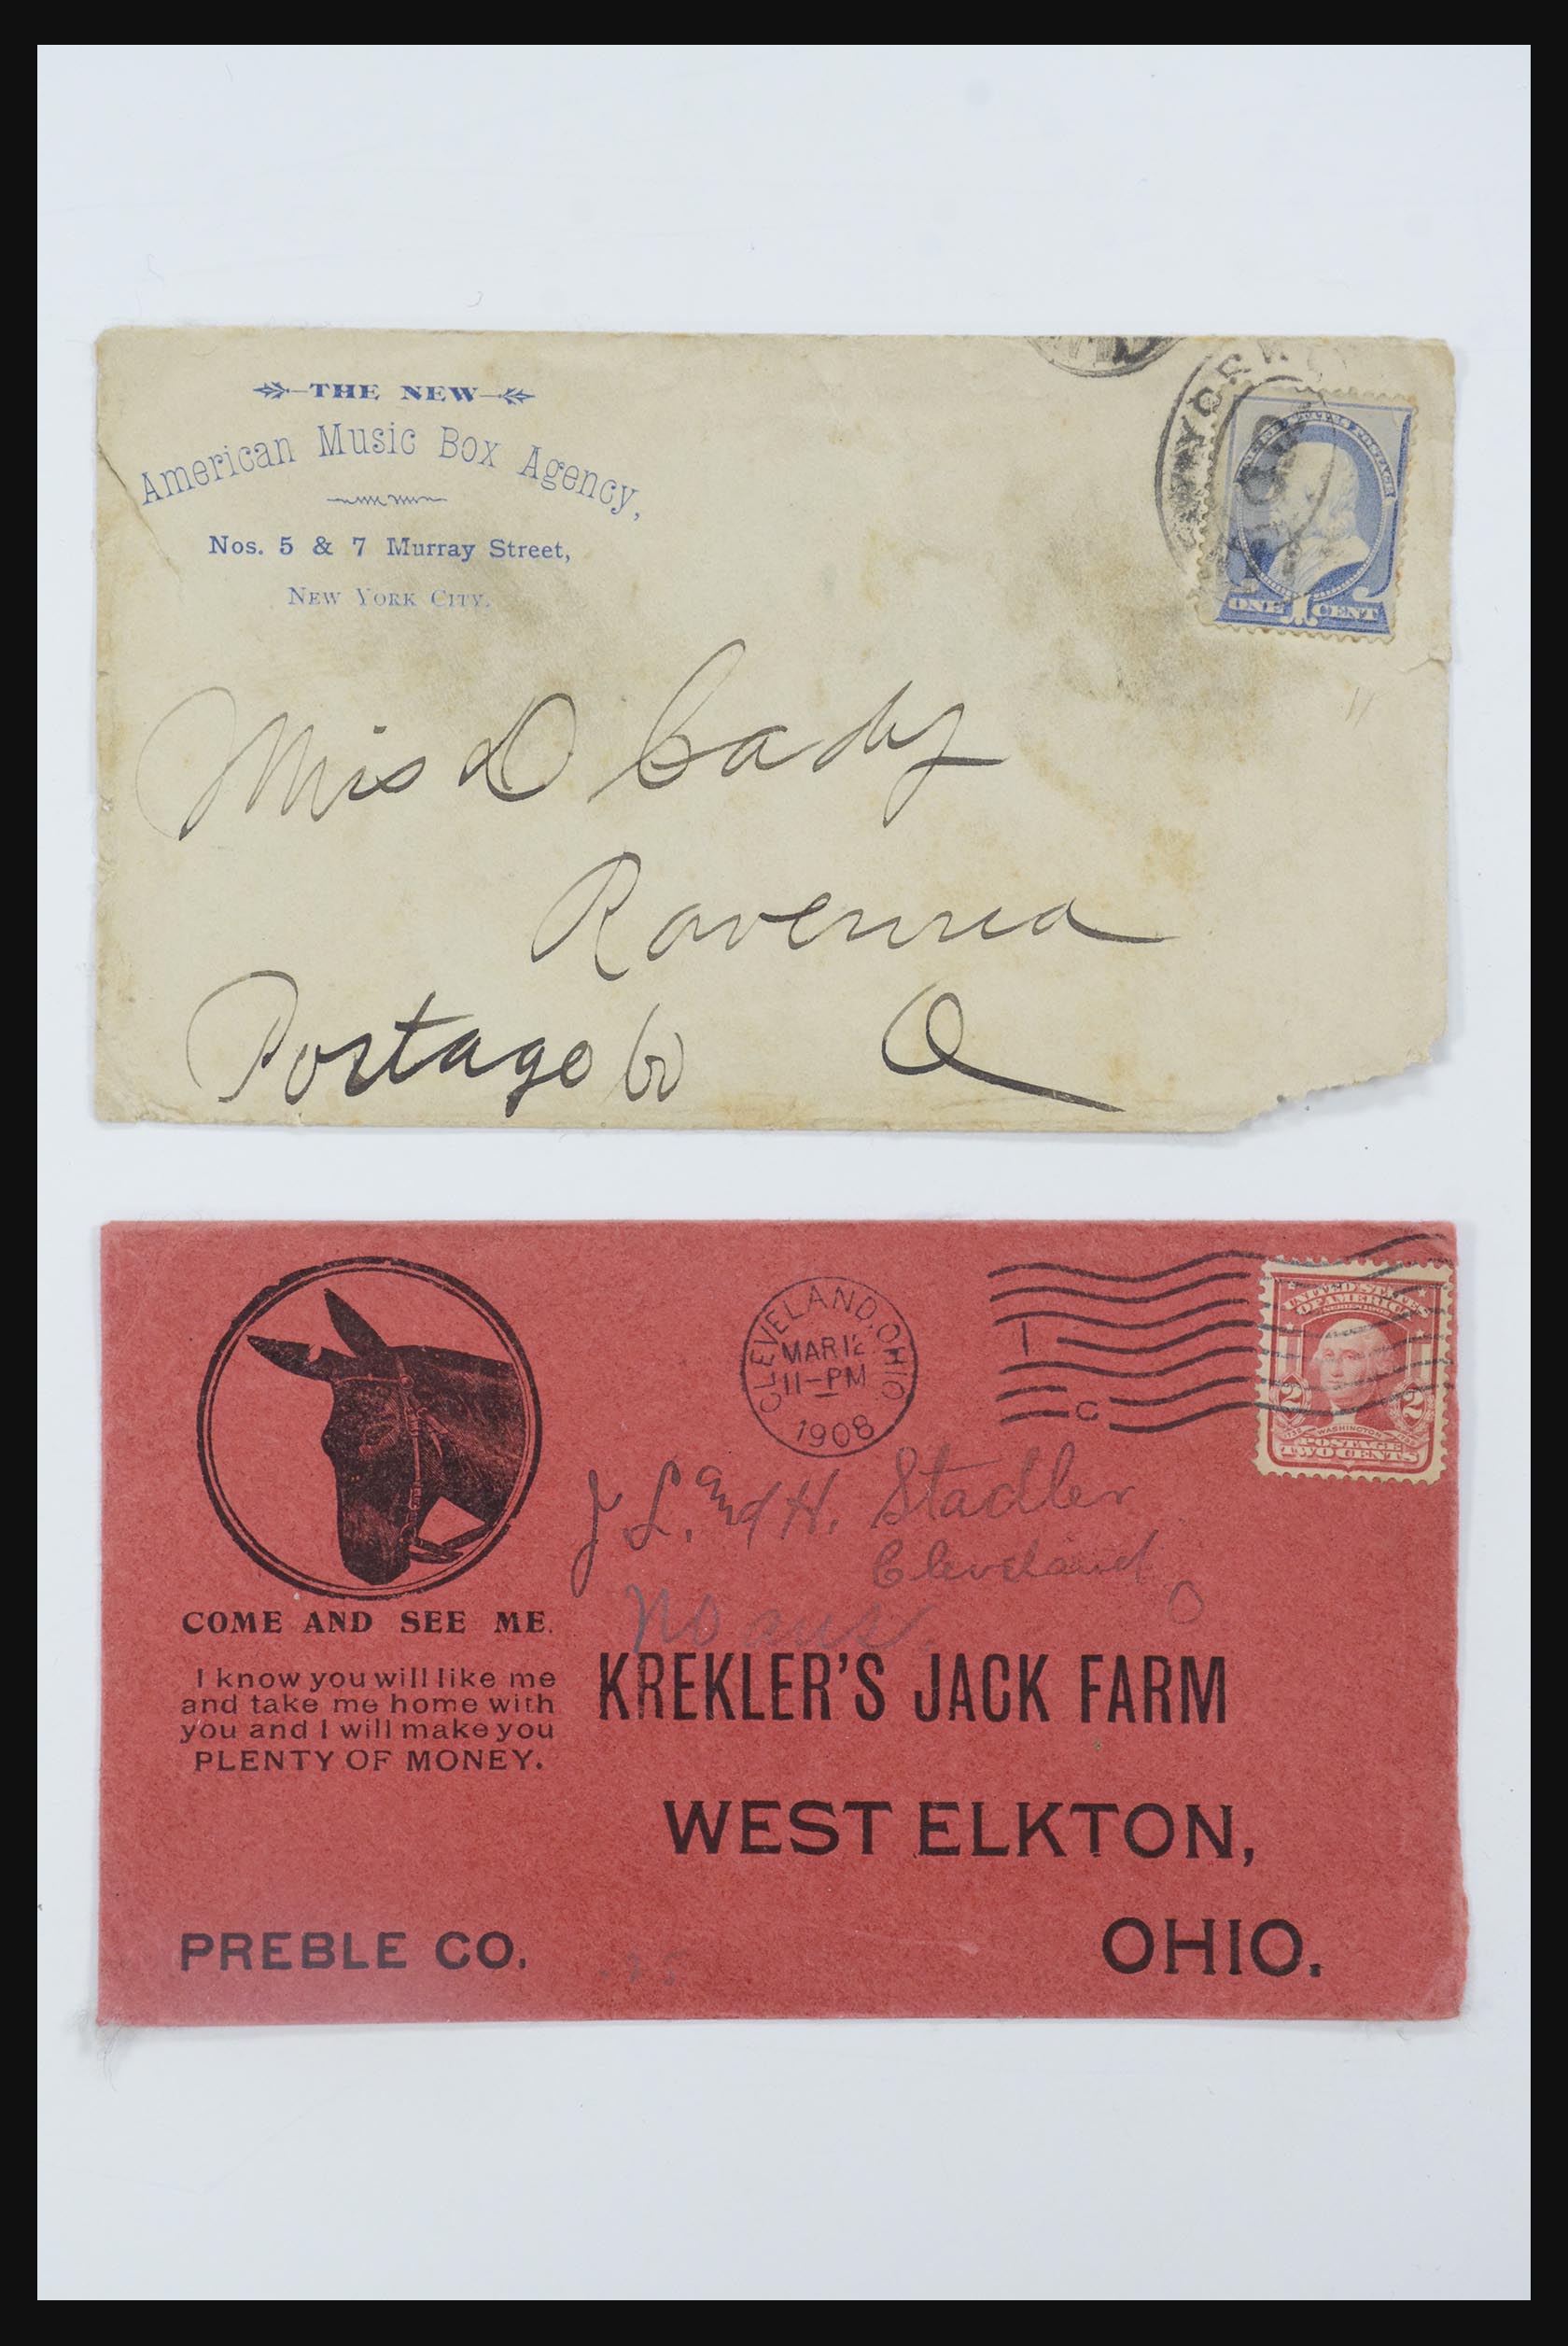 THE NEW
American Music Box Agency,
Nos. 5 & 7 Murray Street,
New York City.
ONE 1 CENT
Miss D Cady
Ravenna
Portage Co O
CLEVELAND, OHIO
MAR 12
11-PM
1908
1
C
UNITED STATES
OF AMERICA
SERIES 1902
2 2
WASHINGTON
POSTAGE
TWO CENTS
J. L. and H. Stadler
Cleveland
O
No ans.
COME AND SEE ME.
I know you will like me
and take me home with
you and I will make you
PLENTY OF MONEY.
KREKLER'S JACK FARM
WEST ELKTON,
PREBLE CO. OHIO.